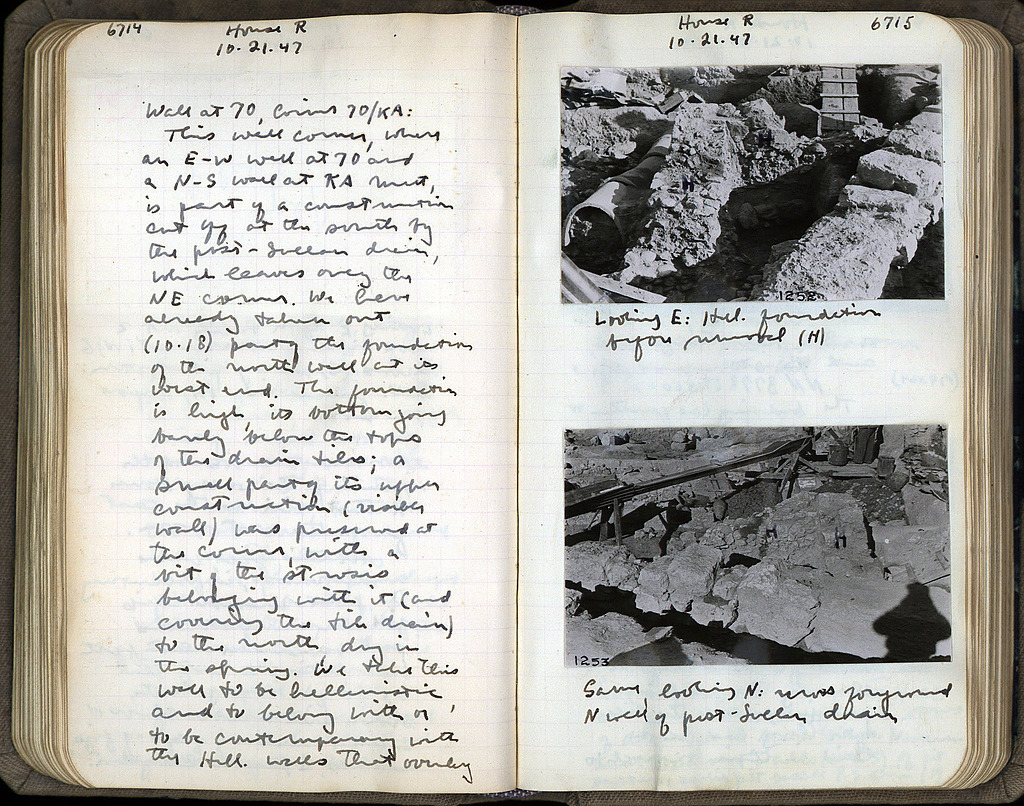 6714
House R
10-21-47
Wall at 70, Corner 70/KA:
This wall corner, where
an E-W wall at 70 and
a N-S wall at KA meet,
is part of a construction
cut off at the south by
the post-Sullan drain,
which leaves only the
NE corner. We have
already taken out
(10.18) part of the foundation
of the north wall at its
west end. The foundation
is high, its bottom going
barely below the tops
of the drain tiles; a
small part of its upper
construction (visible
wall) was preserved at
the corner, with a
bit of the strosis
belonging with it (and
covering the tile drain)
to the north, dug in
the spring. We take this
wall to be hellenistic
and to belong with or
to be contemporary with
the Hell. walls that overlay
6715
House R
10-21-47
H
H
1252
Looking E: Hel. foundation
before removal (H)
H
H
1253
Same, looking N: across foreground
N wall of post-Sullan drain